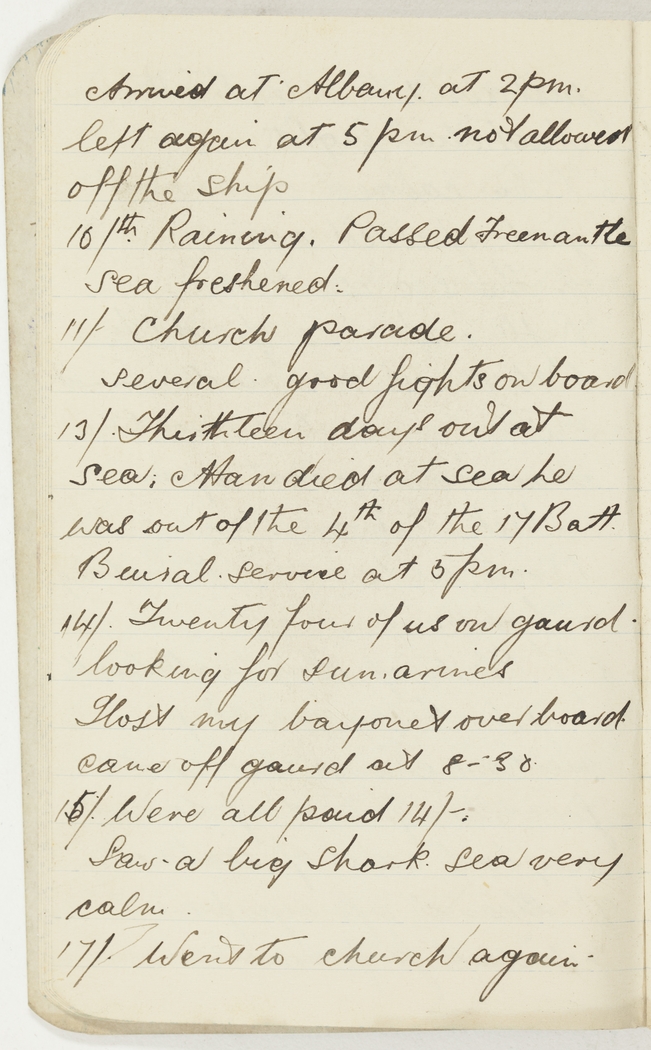 Arrived at Albany. at 2pm.
left again at 5 pm. not allowed
off the ship
10/th Raining. Passed Freemantle
sea freshened.
11/. Church parade.
several. good fights on board
13/. Thirthteen days out at
sea; Man died at sea he
was out of the 4th of the 17 Batt.
Beuiral. service at 5pm.
14/. Twenty four of us on gaurd.
looking for sun.arines
I lost my bayonet over board.
came off gaurd at 8-30
15/. Were all paid 14/-.
Saw a big shark. sea very
calm.
17/. Went to church again.